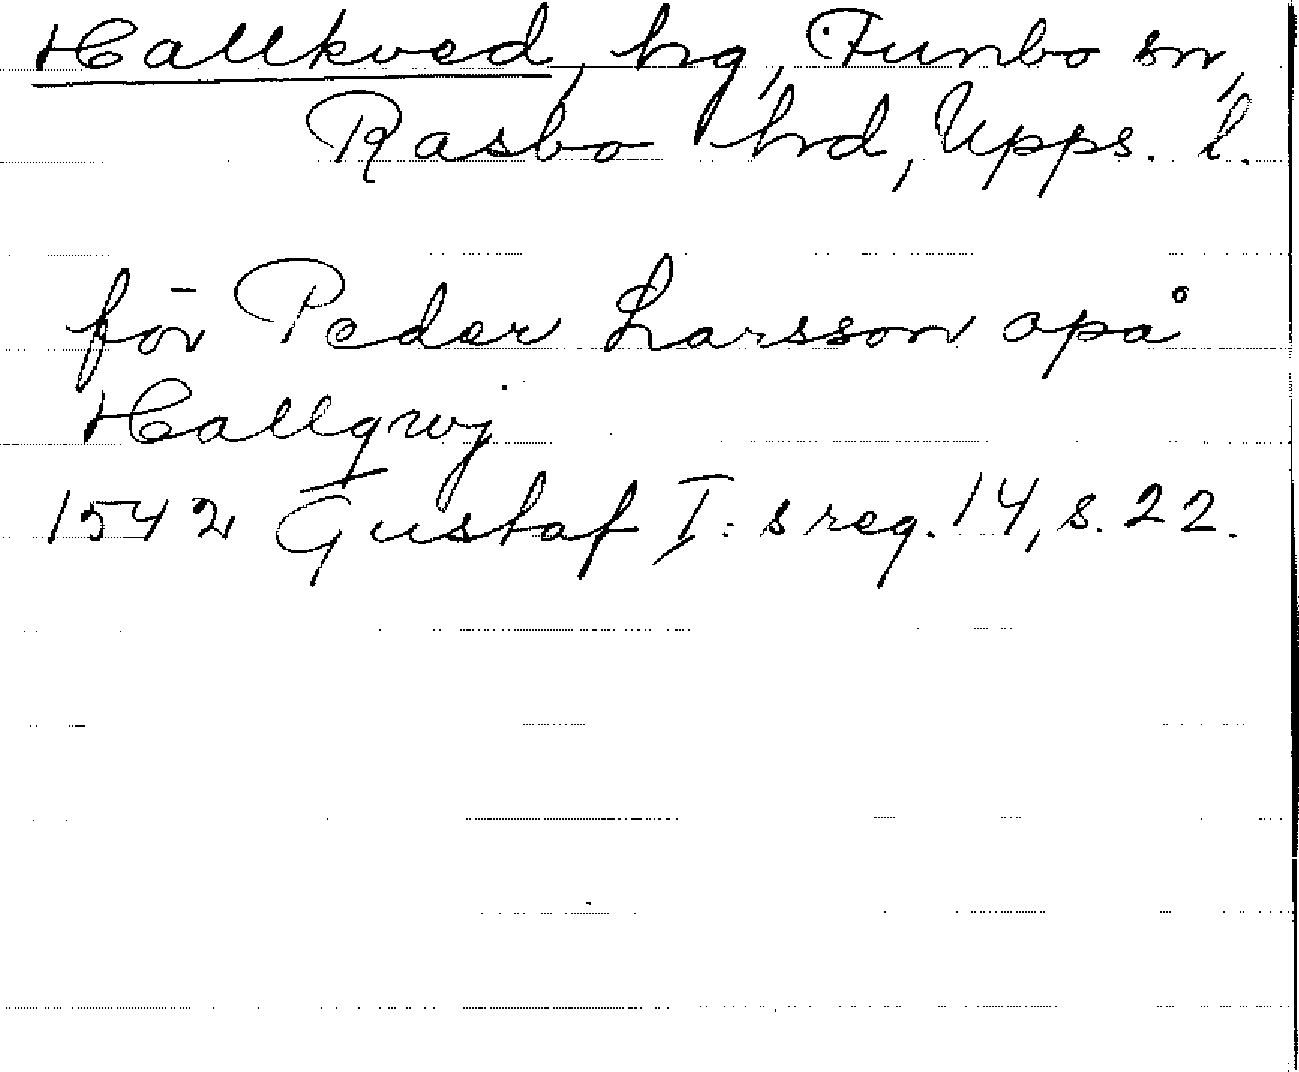 Hallkved, hg, Funbo sn,
Rasbo hrd, Upps. l.
för Peder Larsson opå
Hallgwj
1542 Gustaf I:s reg. 14, s. 22.